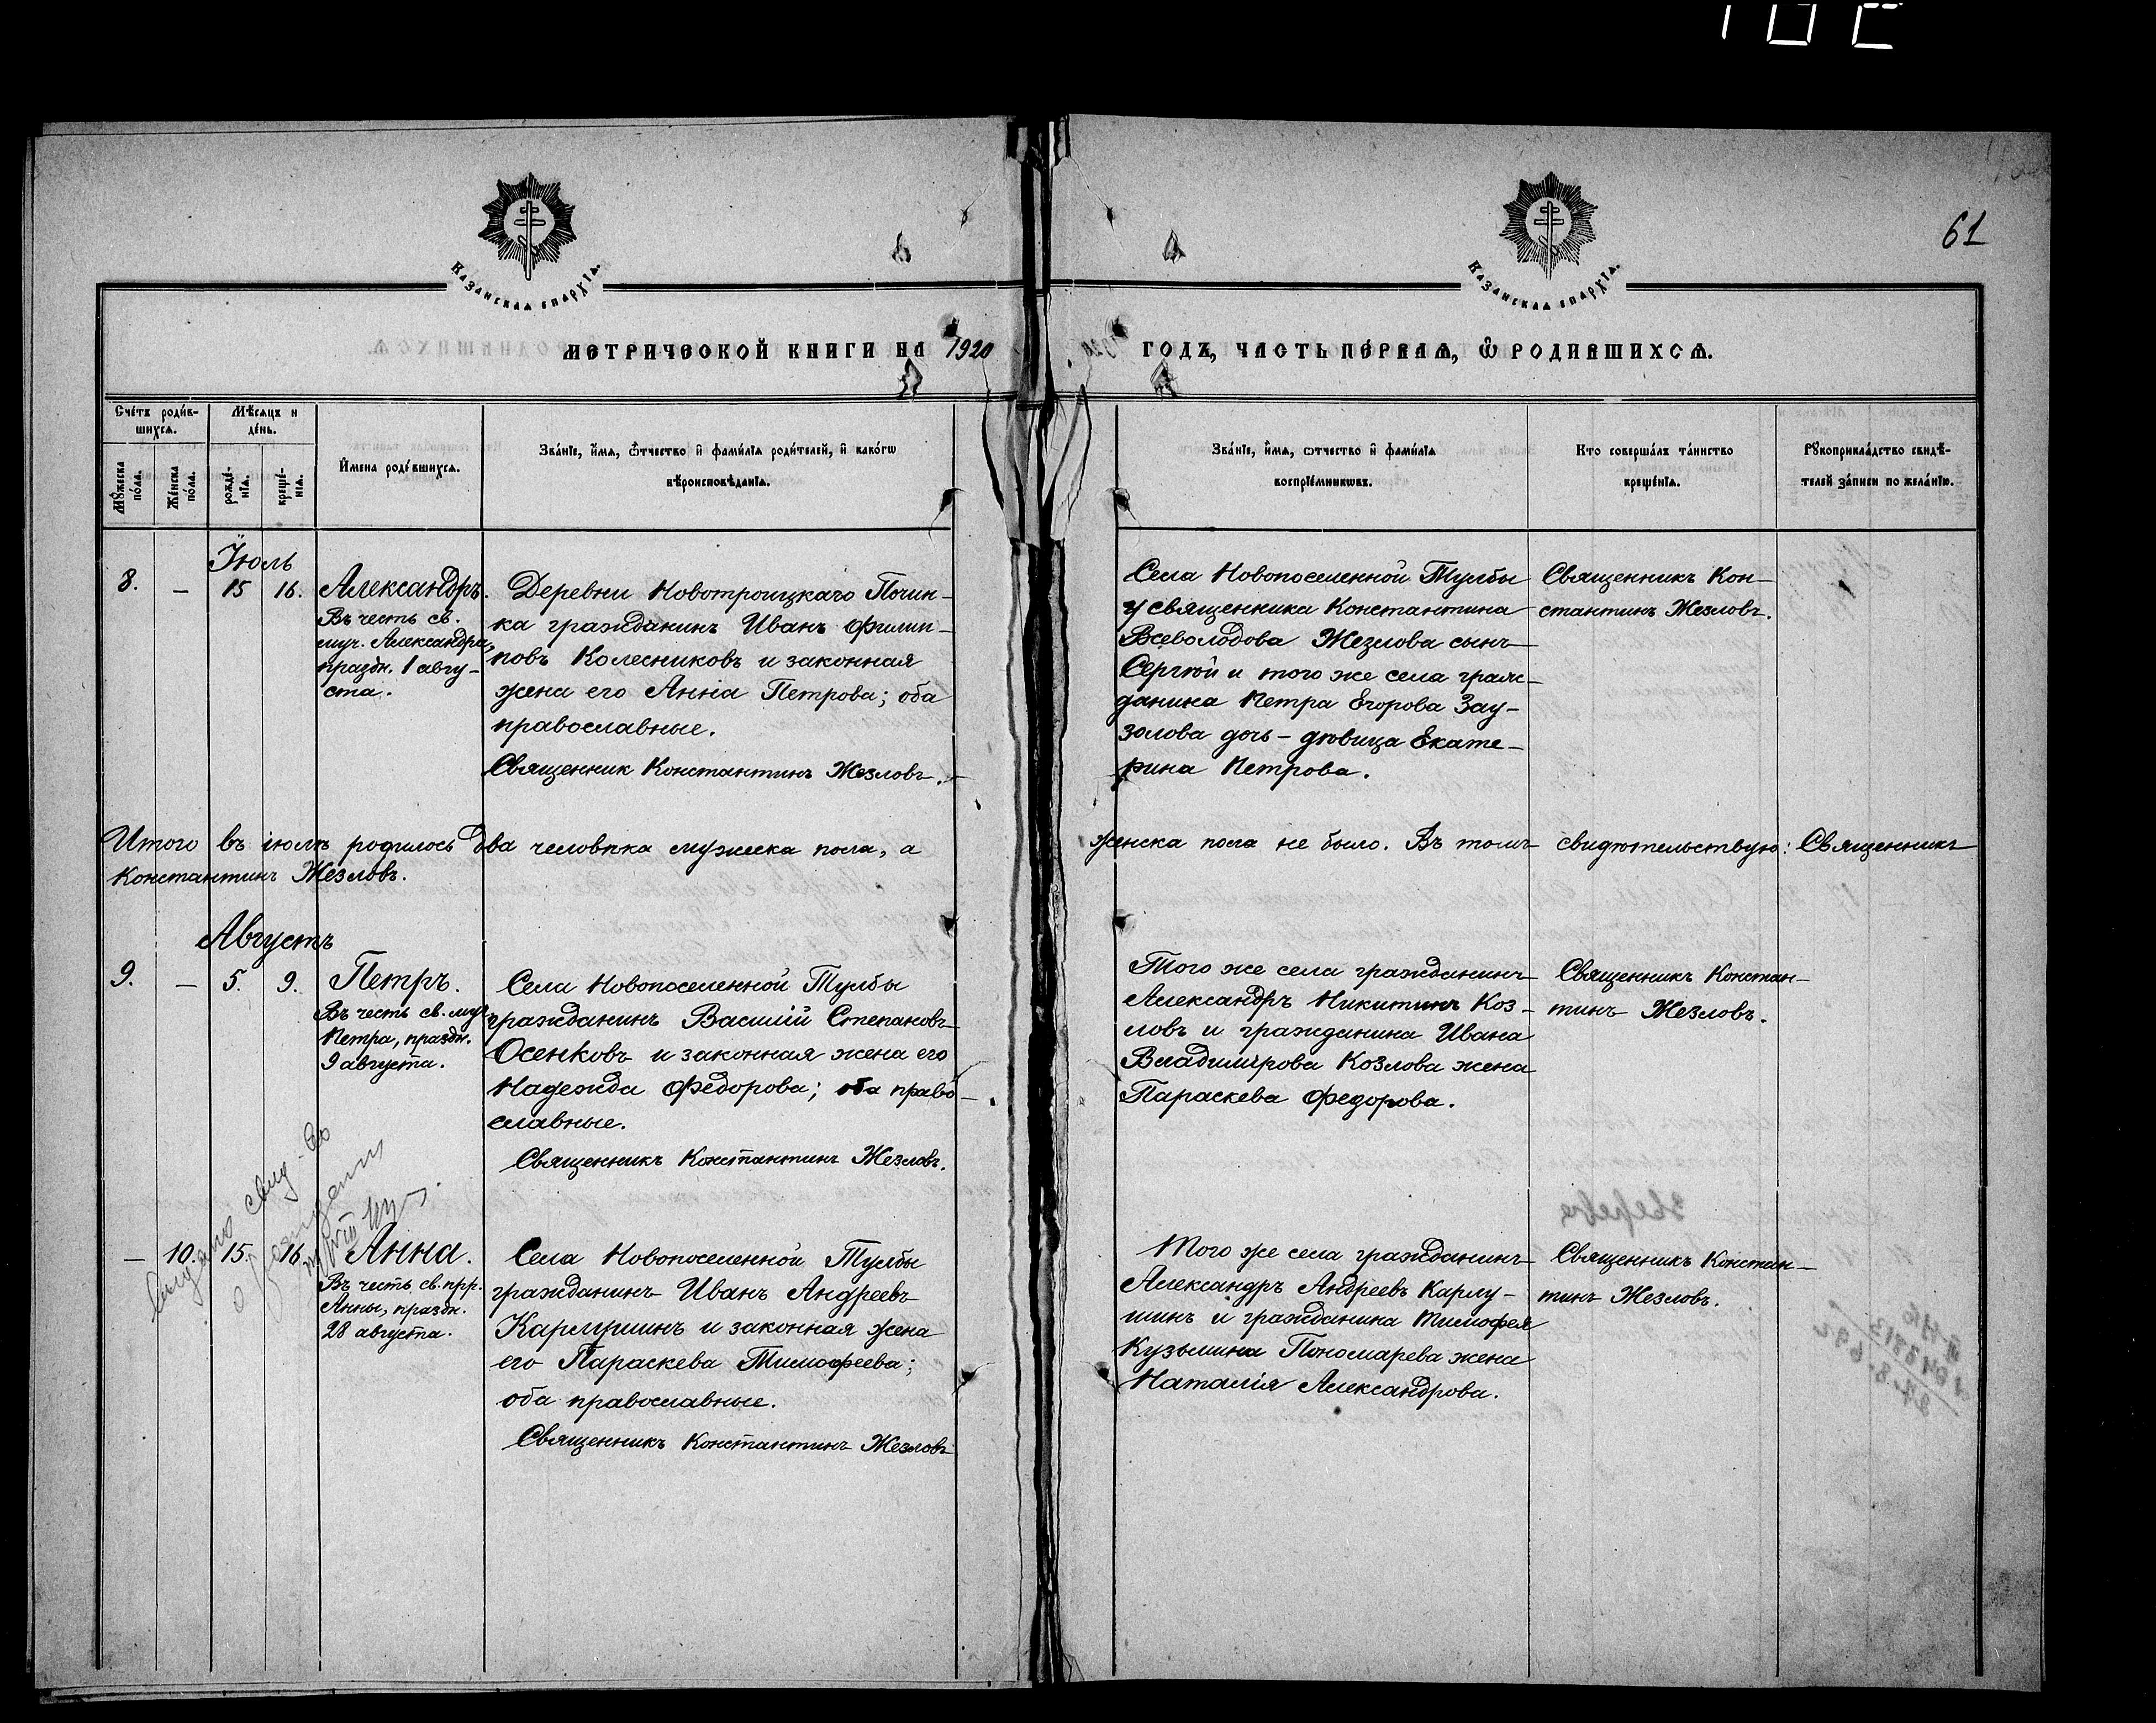 61
Казанская епархїѧ.
Казанская епархїѧ.
МЕТРИЧЕСКОЙ КНИГИ НА 1920
ГОДЪ, ЧАСТЬ ПЕ́РВАѦ, Ѿ РОДИВШИХСѦ.
Сче́тъ роди́в-
шихсѧ.
Мѣ́сѧцъ и
де́нь.
Мꙋ́жеска
по́ла.
Же́нска
по́ла.
рожде́-
нїѧ.
креще́-
нїѧ.
И҆мена роди́вшихсѧ.
Зва́нїе, и҆́мѧ, ѻ҆́тчество и҆ фами́лїѧ роди́телей, и҆ како́гѡ
вѣроисповѣ́данїѧ.
Зва́нїе, и҆́мѧ, ѻтчество и҆ фами́лїѧ
воспрїе́мникѡвъ.
Кто соверша́лъ та́инство
креще́нїѧ.
Рꙋкоприкла́дство свидѣ́-
телей за́писи по жела́нїю.
Іюль
8. — 15 16. Александръ.
Въ честь св.
муч. Александра,
праздн. 1 авгу-
ста.
Деревни Новотроицкаго Почин-
ка гражданинъ Иванъ Филип-
повъ Колесниковъ и законная
жена его Анна Петрова; оба
православные.
Священник Константинъ Жезловъ.
Села Новопоселенной Тулбы
у священника Константина
Всеволодова Жезлова сынъ
Сергѣй и того же села граж-
данина Петра Егорова Зау-
золова дочь – дѣвица Екате-
рина Петрова.
Священникъ Кон-
стантинъ Жезловъ.
Итого въ іюлѣ родилось два человѣка мужеска пола, а женска пола не было. Въ томъ свидѣтельствую: Священникъ
Константинъ Жезловъ.
Августъ
9. — 5. 9. Петръ.
Въ честь св. муч.
Петра, праздн.
9 августа.
Села Новопоселенной Тулбы
гражданинъ Василій Степановъ
Осенковъ и законная жена его
Надежда Федорова; оба право-
славные.
Священникъ Константинъ Жезловъ.
Того же села гражданинъ
Александръ Никитинъ Коз-
ловъ и гражданина Ивана
Владимірова Козлова жена
Параскева Федорова.
Священникъ Констан-
тинъ Жезловъ.
— 10. 15. 16. Анна.
Въ честь св. прр.
Анны, праздн.
28 августа.
Села Новопоселенной Тулбы
гражданинъ Иванъ Андреевъ
Карлушинъ и законная жена
его Параскева Тимофеева;
оба православные.
Священникъ Константинъ Жезловъ
Того же села гражданинъ
Александръ Андреевъ Карлу-
шинъ и гражданина Тимофея
Кузьмина Пономарева жена
Наталія Александрова.
Священникъ Констан-
тинъ Жезловъ.